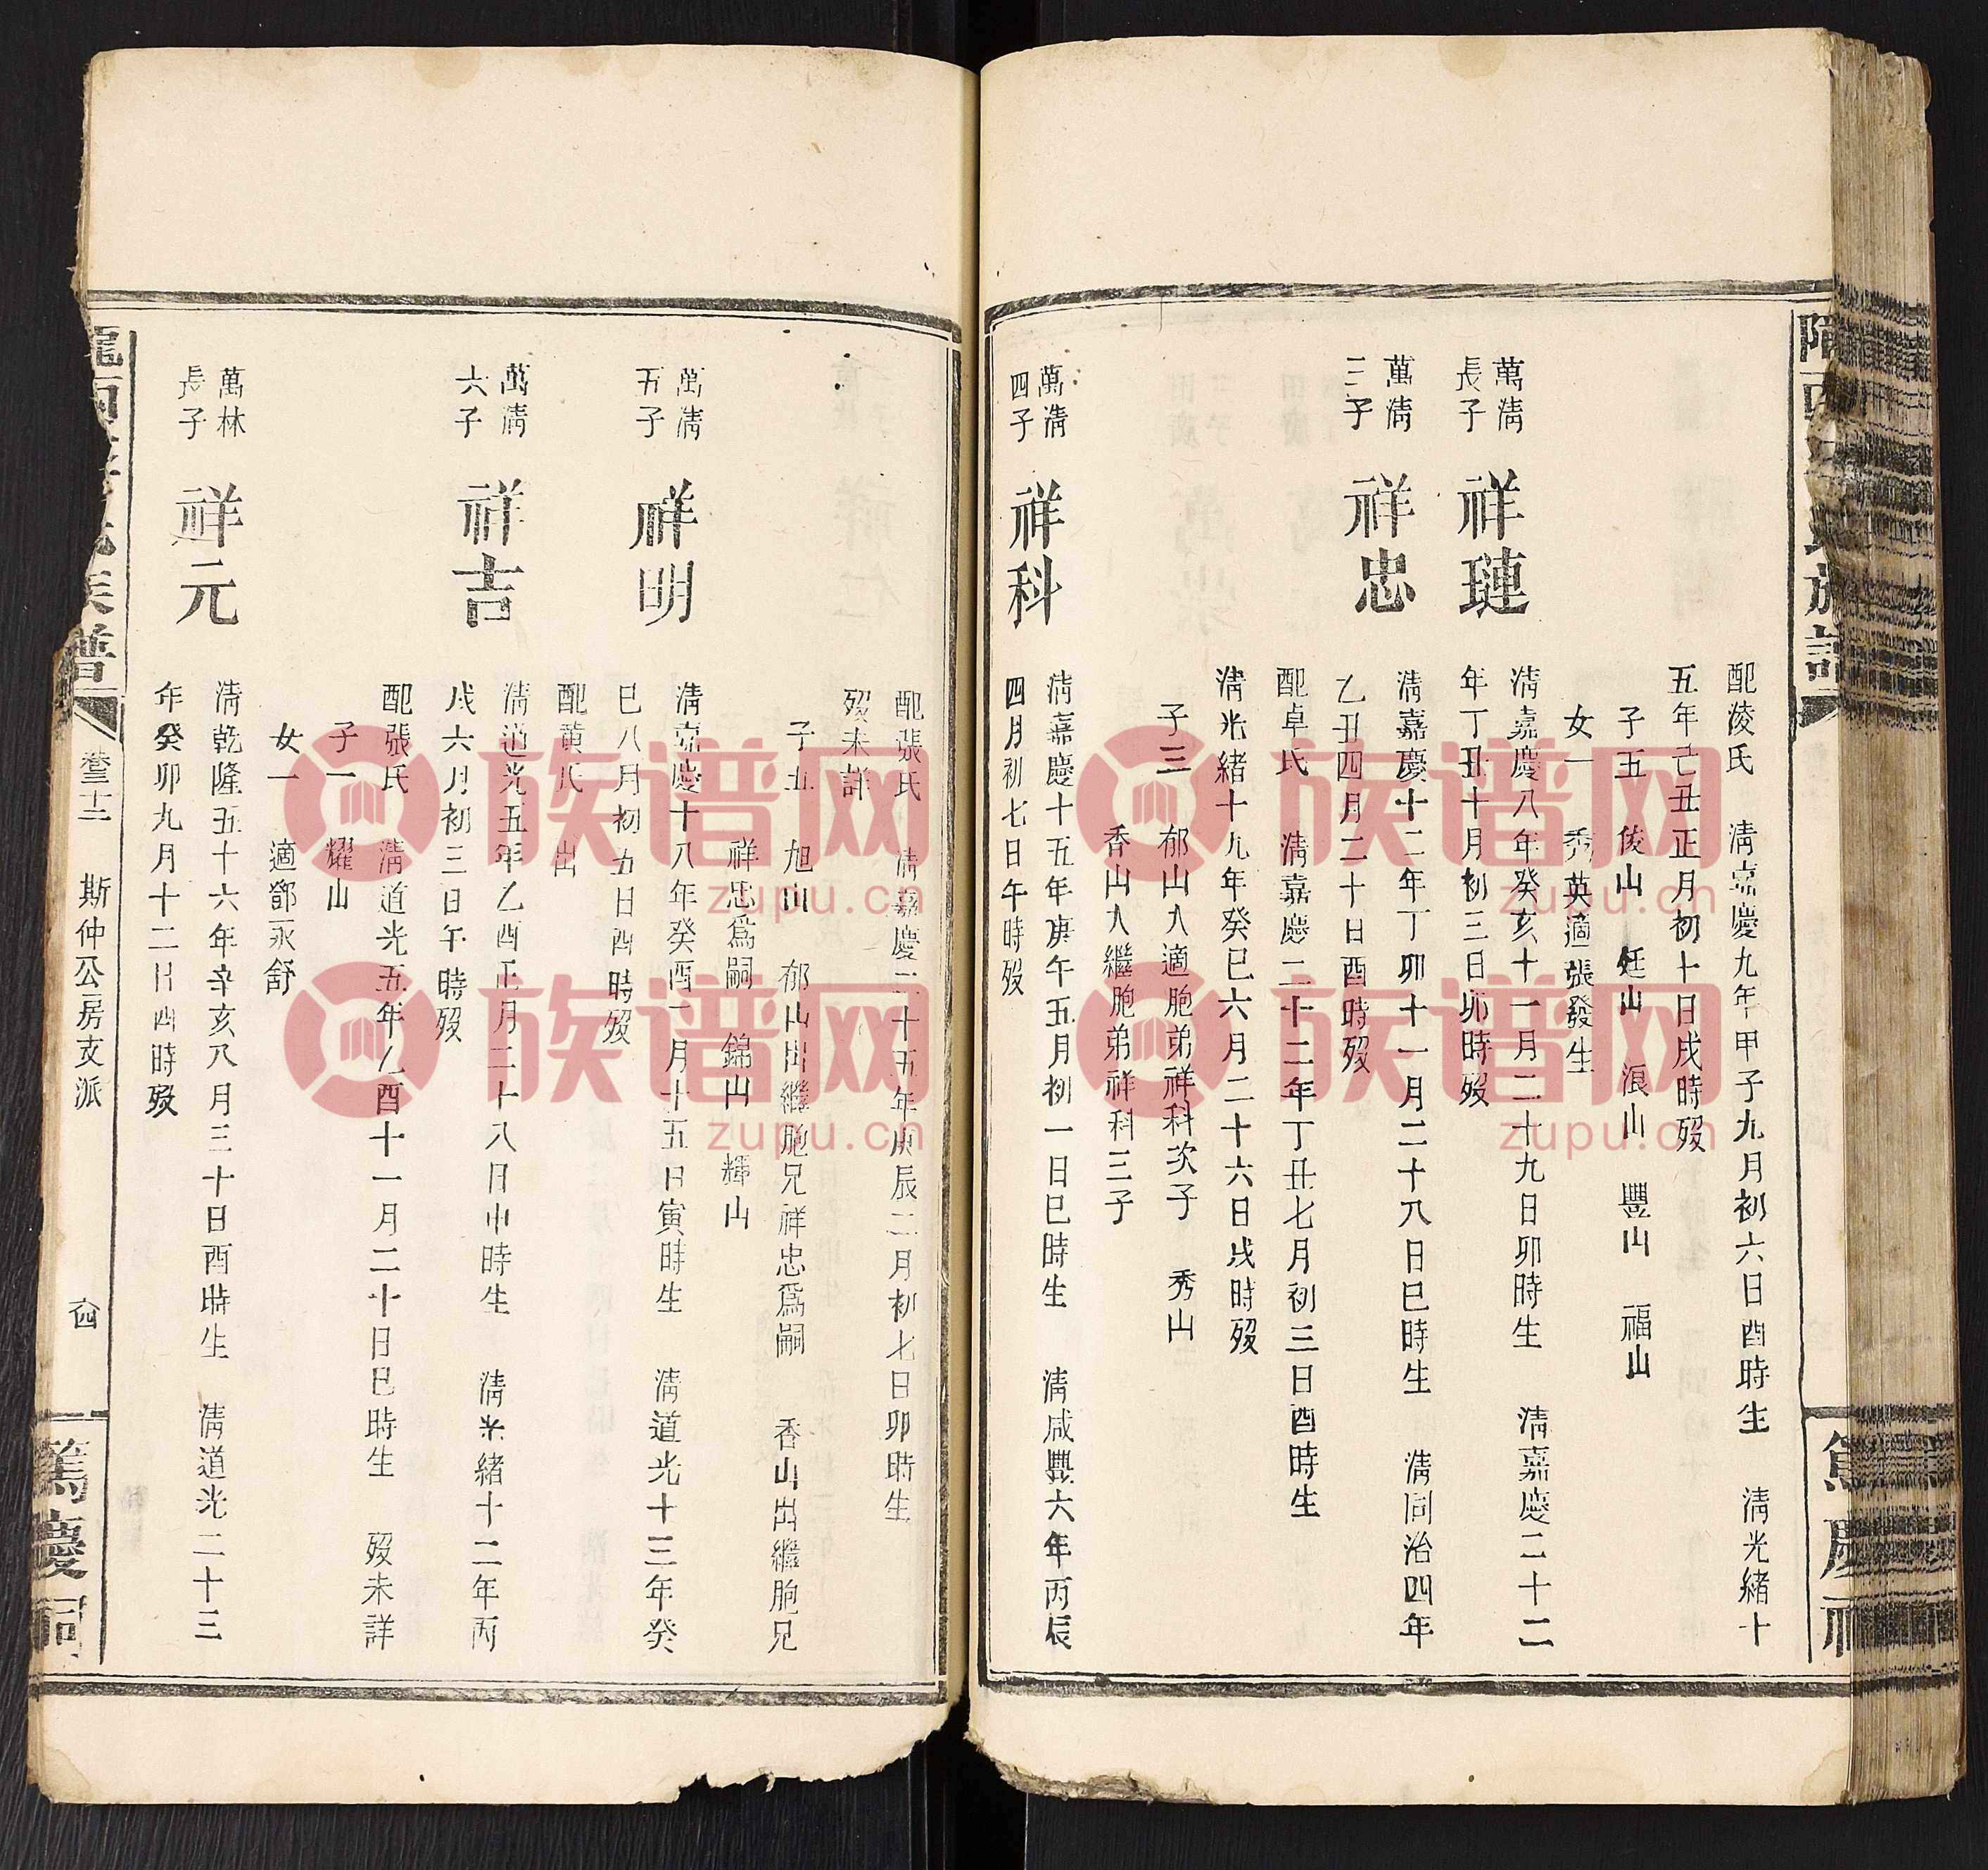 配淩氏　淸嘉慶九年甲子九月初六日酉時生　淸光緒十
五年己丑正月初十日戌時歿
子五　俊山　廷山　浪山　豐山　福山
女一　秀英適張發生
萬淸長子　祥璉　淸嘉慶八年癸亥十一月二十九日卯時生　淸嘉慶二十二
年丁丑十月初三日卯時歿
萬淸三子　祥忠　淸嘉慶十二年丁卯十一月二十八日巳時生　淸同治四年
乙丑四月二十日酉時歿
配卓氏　淸嘉慶二十二年丁丑七月初三日酉時生
淸光緒十九年癸巳六月二十六日戌時歿
子三　郁山入適胞弟祥科次子　秀山
香山入繼胞弟祥科三子
萬淸四子　祥科　淸嘉慶十五年庚午五月初一日巳時生　淸咸豐六年丙辰
四月初七日午時歿
配張氏　淸嘉慶二十五年庚辰二月初七日卯時生
歿未詳
子五　旭山　郁山出繼胞兄祥忠爲嗣　香山出繼胞兄
祥忠爲嗣　錦山　輝山
萬淸五子　祥明　淸嘉慶十八年癸酉一月十五日寅時生　淸道光十三年癸
巳八月初五日酉時歿
配黃氏　出
萬淸六子　祥吉　淸道光五年乙酉正月二十八日申時生　淸光緒十二年丙
戌六月初三日午時歿
配張氏　淸道光五年乙酉十一月二十日巳時生　歿未詳
子一　耀山
女一　適鄧永舒
萬林長子　祥元　淸乾隆五十六年辛亥八月三十日酉時生　淸道光二十三
年癸卯九月十二日酉時歿
族譜　卷三十二　斯仲公房支派　篤慶祠
族谱网
zupu.cn
族谱网
zupu.cn
族谱网
zupu.cn
族谱网
zupu.cn